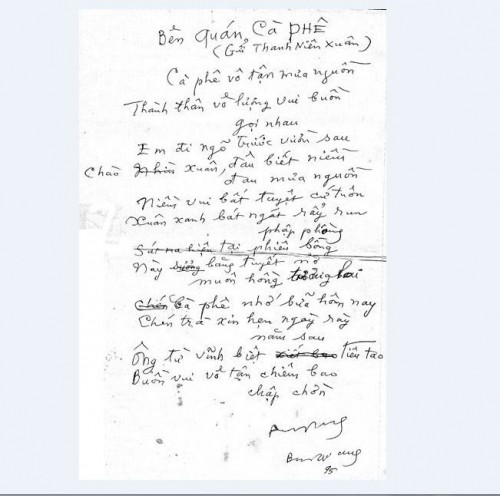 Bên Quán Cà PHÊ
(Gửi Thanh Niên Xuân)
Cà phê vô tận mưa nguồn
Thành thân vô lượng vui buồn
gọi nhau
Em đi ngõ trước vườn sau
Chào xuân, đâu biết niềm
đau mưa nguồn
Niềm vui bất tuyệt cứ tuôn
Xuân xanh bát ngát rẩy run
phập phồng
tại phiên bông
Này băng tuyết nở
muôn hồng
Cà phê nhớ bữa hôm nay
Chén trà xin hẹn ngày rày
năm sau
Ông từ vĩnh biệt Tiền tao
Buồn vui vô tận chiêm bao
chập chờn
95